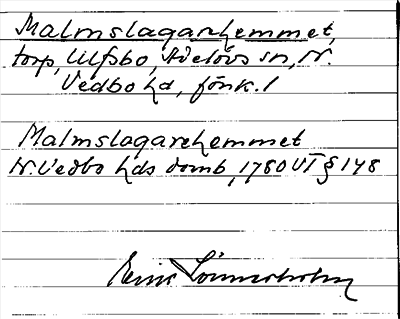 Malmslagarehemmet,
torp, Ulfsbo, Adelövs sn, N.
Vedbo hd, Jönk. l
Malmslagarehemmet
N. Vedbo hds domb, 1780 VT § 148